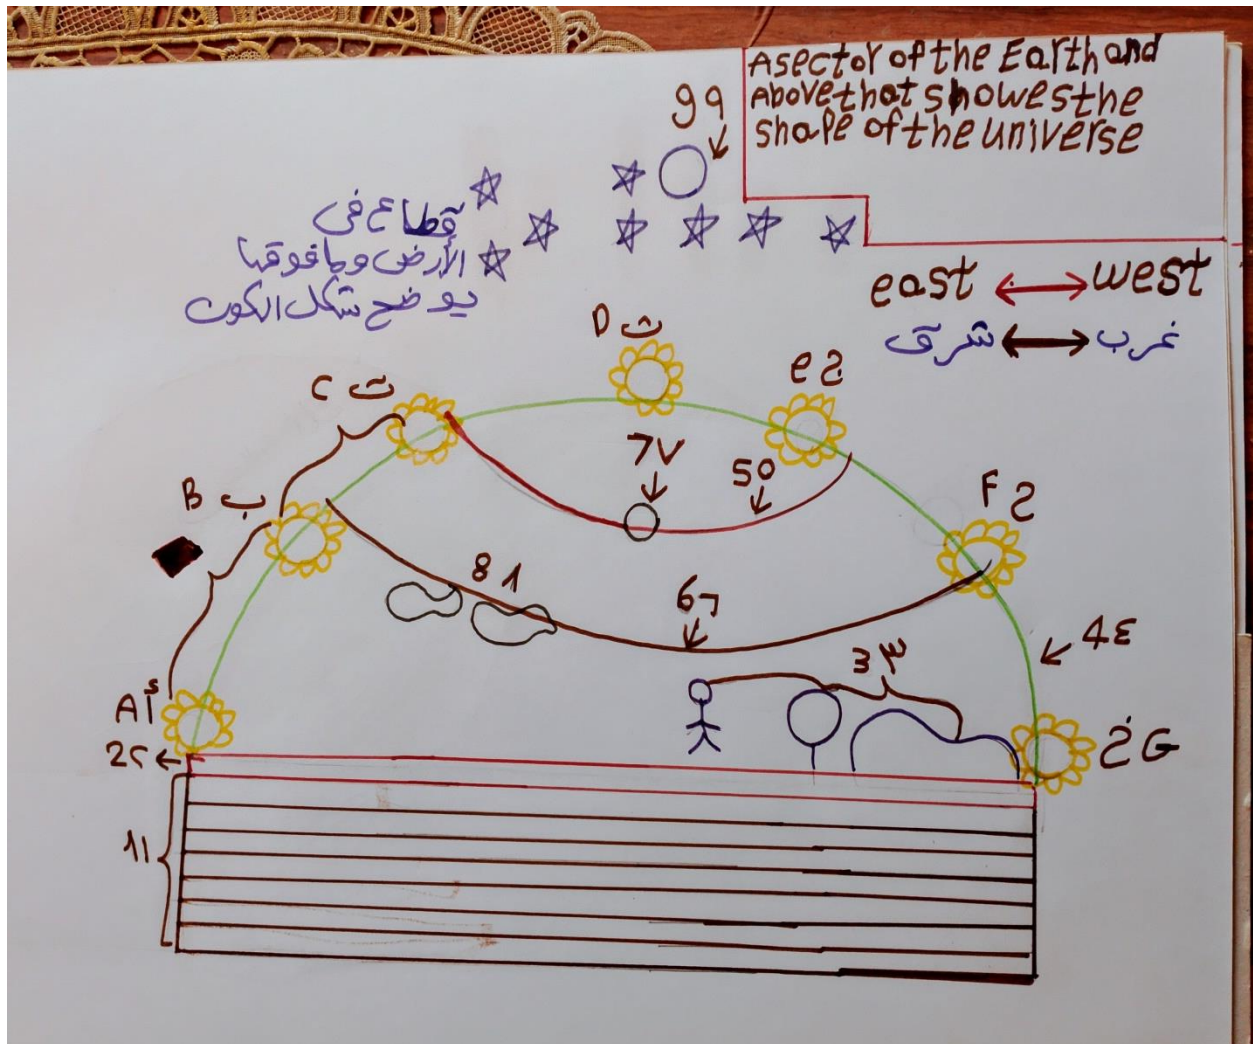 A sector of the Earth and
Above that showes the
shape of the universe
9 9
قطاع في
الأرض وما فوقها
يوضح شكل الكون
east west
شرق غرب
D ث
C ت
e ج
7 ٧
5 ٥
B ب
F ح
8 ٨
6 ٦
3 ٣
4 ٤
A أ
2 ٢
G خ
1 ١